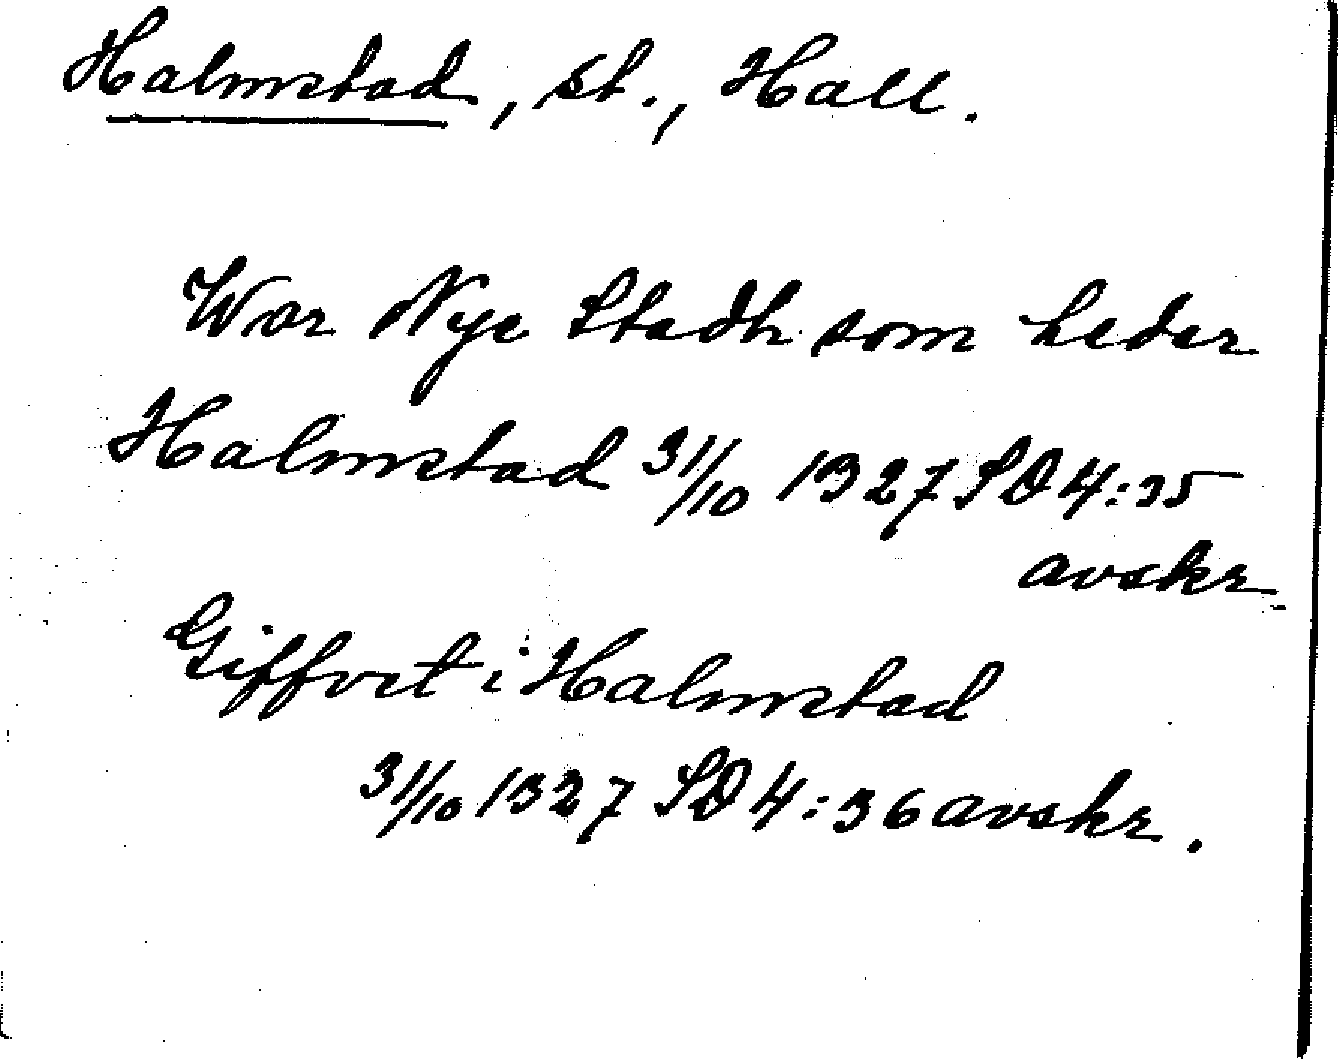 Halmstad, st., Hall.
War Nye Stadh som heder
Halmstad 31/10 1327 SD 4:35
avskr
Giffvet i Halmstad
31/10 1327 SD 4:36 avskr.